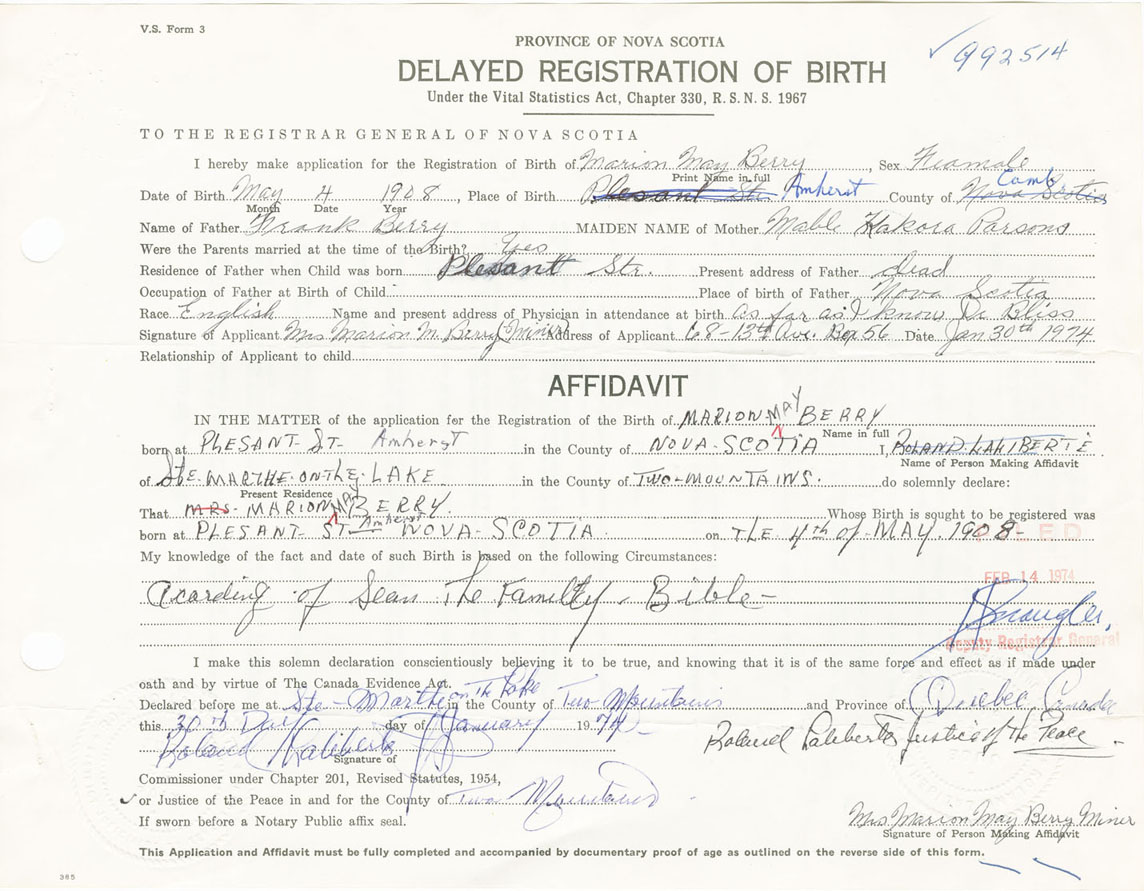 V.S. Form 3
992514
PROVINCE OF NOVA SCOTIA
DELAYED REGISTRATION OF BIRTH
Under the Vital Statistics Act, Chapter 330, R. S. N. S. 1967
TO THE REGISTRAR GENERAL OF NOVA SCOTIA
I hereby make application for the Registration of Birth of Marion May Berry, Sex Feamale
Print Name in full
Date of Birth May 4 1908, Place of Birth Plesant Str. Amherst County of Nova Scotia Cumb
Month Date Year
Name of Father Frank Berry MAIDEN NAME of Mother Mable Hakora Parsons
Were the Parents married at the time of the Birth? Yes
Residence of Father when Child was born Plesant Str. Present address of Father dead
Occupation of Father at Birth of Child Place of birth of Father Nova Scotia
Race English Name and present address of Physician in attendance at birth as far as I know Dr Bliss
Signature of Applicant Mrs Marion M. Berry (Miner) Address of Applicant 68-13th Ave. Box 56 Date Jan 30th 1974
Relationship of Applicant to child
AFFIDAVIT
IN THE MATTER of the application for the Registration of the Birth of MARION MAY BERRY
Name in full
born at PLESANT-ST- Amherst in the County of NOVA-SCOTIA I, ROLAND LALIBERTE
Name of Person Making Affidavit
of STE. MARTHE-ON-THE-LAKE in the County of TWO-MOUNTAINS. do solemnly declare:
Present Residence
That MRS- MARION MAY BERRY. Whose Birth is sought to be registered was
born at PLESANT-ST- Amherst NOVA-SCOTIA on THE 4th of-MAY. 1908-
My knowledge of the fact and date of such Birth is based on the following Circumstances:
FEB 14 1974
Acarding of Sean The Familty - Bible-
Deputy Registrar General
I make this solemn declaration conscientiously believing it to be true, and knowing that it is of the same force and effect as if made under
oath and by virtue of The Canada Evidence Act.
Declared before me at Ste-Marthe on The Lake in the County of Two Mountains and Province of Quebec, Canada
this 30th Day day of January 1974-
Roland Laliberte
Roland Laliberte Justice of the Peace
Signature of
Commissioner under Chapter 201, Revised Statutes, 1954,
or Justice of the Peace in and for the County of Two Mountains
If sworn before a Notary Public affix seal.
Mrs Marion May Berry Miner
Signature of Person Making Affidavit
This Application and Affidavit must be fully completed and accompanied by documentary proof of age as outlined on the reverse side of this form.
365